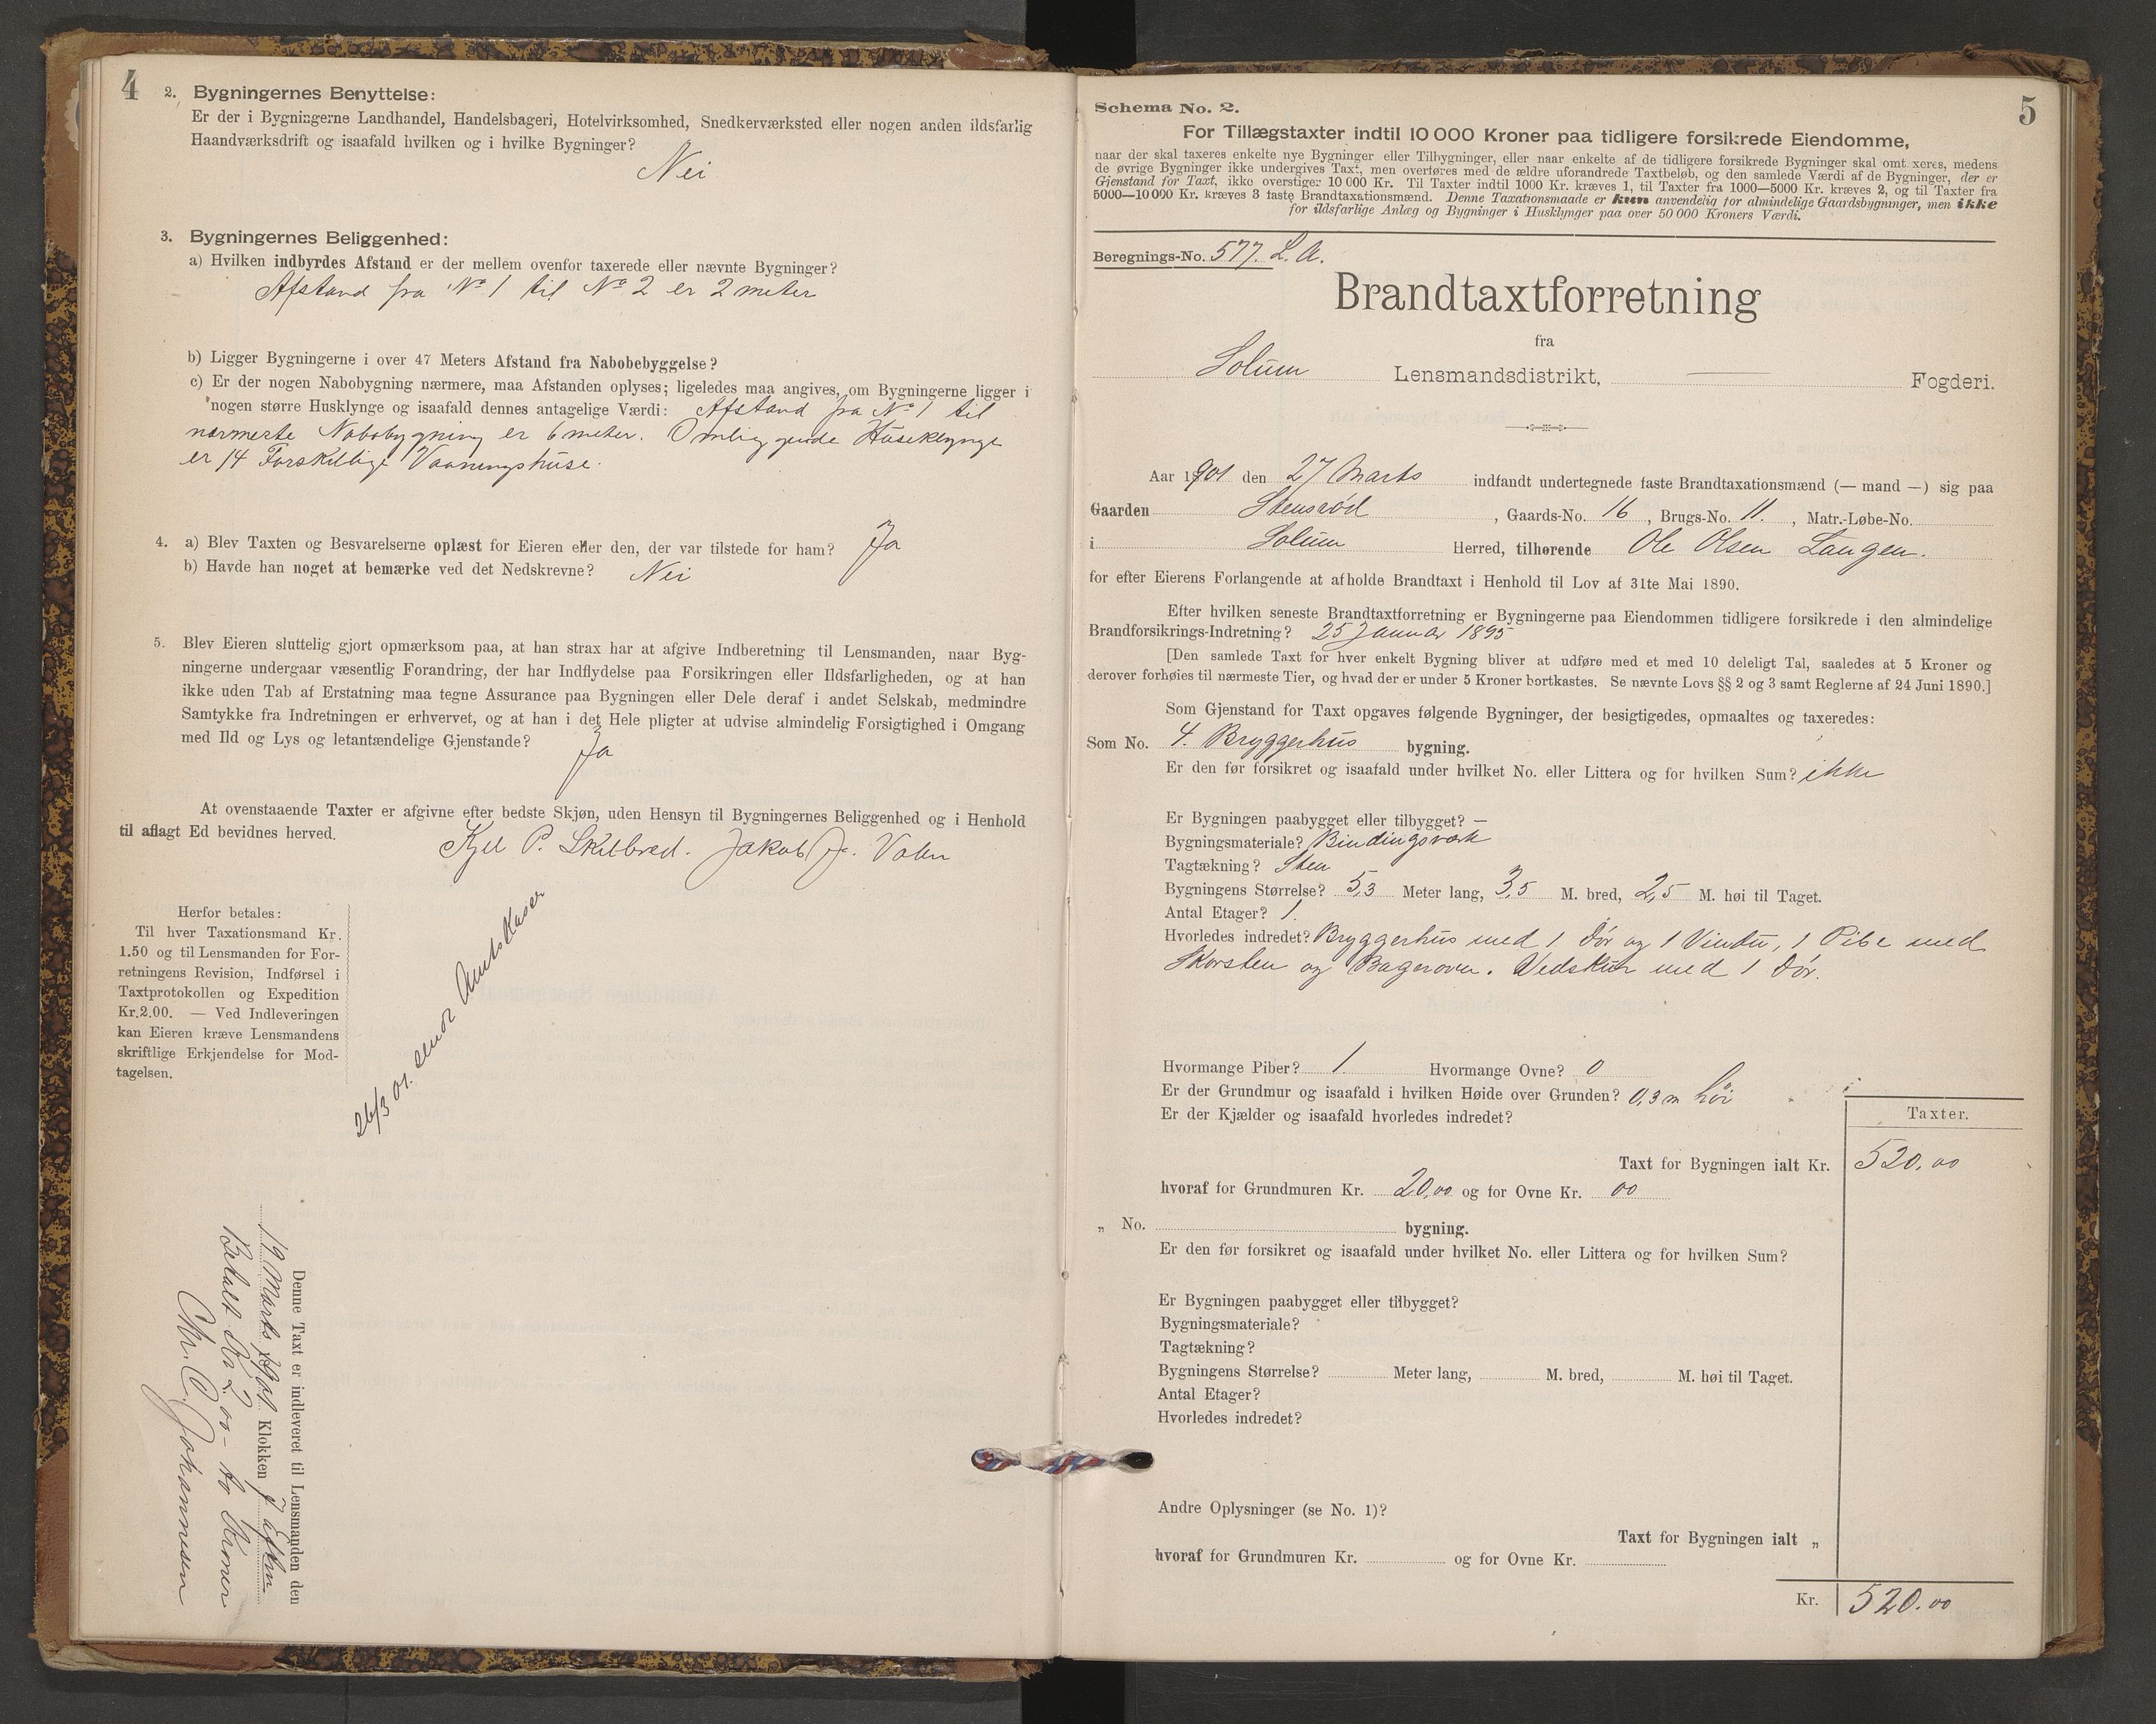 4
2. Bygningernes Benyttelse:
Er der i Bygningerne Landhandel, Handelsbageri, Hotelvirksomhed, Snedkerværksted eller nogen anden ildsfarlig
Haandværksdrift og isaafald hvilken og i hvilke Bygninger?
Nei
3. Bygningernes Beliggenhed:
a) Hvilken indbyrdes Afstand er der mellem ovenfor taxerede eller nævnte Bygninger?
Afstand fra No 1 til No 2 er 2 meter
b) Ligger Bygningerne i over 47 Meters Afstand fra Nabobebyggelse?
c) Er der nogen Nabobygning nærmere, maa Afstanden oplyses; ligeledes maa angives, om Bygningerne ligger i
nogen større Husklynge og isaafald dennes antagelige Værdi: Afstand fra No 1 til
nærmeste Nabobygning er 6 meter. Omliggende Huseklynge
er 14 Forskillige Vaaningshuse.
4. a) Blev Taxten og Besvarelserne oplæst for Eieren eller den, der var tilstede for ham? Ja
b) Havde han noget at bemærke ved det Nedskrevne? Nei
5. Blev Eieren sluttelig gjort opmærksom paa, at han strax har at afgive Indberetning til Lensmanden, naar Byg-
ningerne undergaar væsentlig Forandring, der har Indflydelse paa Forsikringen eller Ildsfarligheden, og at han
ikke uden Tab af Erstatning maa tegne Assurance paa Bygningen eller Dele deraf i andet Selskab, medmindre
Samtykke fra Indretningen er erhvervet, og at han i det Hele pligter at udvise almindelig Forsigtighed i Omgang
med Ild og Lys og letantændelige Gjenstande? Ja
At ovenstaaende Taxter er afgivne efter bedste Skjøn, uden Hensyn til Bygningernes Beliggenhed og i Henhold
til aflagt Ed bevidnes herved.
Kjel P. Skilbred. Jakob J. Valen
Herfor betales:
Til hver Taxationsmand Kr.
1.50 og til Lensmanden for For-
retningens Revision, Indførsel i
Taxtprotokollen og Expedition
Kr.2.00. — Ved Indleveringen
kan Eieren kræve Lensmandens
skriftlige Erkjendelse for Mod-
tagelsen.
26/3 01. sendt Amtskaser
Denne Taxt er indleveret til Lensmanden den
19 Marts 1901 Klokken 7 Efter
Betalt Kr 2,00 - to Kroner
Chr. C. Johannesen
5
Schema No. 2.
For Tillægstaxter indtil 10 000 Kroner paa tidligere forsikrede Eiendomme,
naar der skal taxeres enkelte nye Bygninger eller Tilbygninger, eller naar enkelte af de tidligere forsikrede Bygninger skal omt xeres, medens
de øvrige Bygninger ikke undergives Taxt, men overføres med de ældre uforandrede Taxtbeløb, og den samlede Værdi af de Bygninger, der er
Gjenstand for Taxt, ikke overstiger 10 000 Kr. Til Taxter indtil 1000 Kr. kræves 1, til Taxter fra 1000—5000 Kr. kræves 2, og til Taxter fra
5000—10 000 Kr. kræves 3 faste Brandtaxationsmænd. Denne Taxationsmaade er kun anvendelig for almindelige Gaardsbygninger, men ikke
for ildsfarlige Anlæg og Bygninger i Husklynger paa over 50 000 Kroners Værdi.
Beregnings-No. 577. L. A.
Brandtaxtforretning
fra
Solum Lensmandsdistrikt, — Fogderi.
Aar 1901 den 27 Marts indfandt undertegnede faste Brandtaxationsmænd (— mand —) sig paa
Gaarden Stensrød, Gaards-No. 16, Brugs-No. 11., Matr.-Løbe-No.
i Solum Herred, tilhørende Ole Olsen Langen.
for efter Eierens Forlangende at afholde Brandtaxt i Henhold til Lov af 31te Mai 1890.
Efter hvilken seneste Brandtaxtforretning er Bygningerne paa Eiendommen tidligere forsikrede i den almindelige
Brandforsikrings-Indretning? 25 Januar 1895
[Den samlede Taxt for hver enkelt Bygning bliver at udføre med et med 10 deleligt Tal, saaledes at 5 Kroner og
derover forhøies til nærmeste Tier, og hvad der er under 5 Kroner bortkastes. Se nævnte Lovs §§ 2 og 3 samt Reglerne af 24 Juni 1890.]
Som Gjenstand for Taxt opgaves følgende Bygninger, der besigtigedes, opmaaltes og taxeredes:
Som No. 4. Bryggerhus bygning.
Er den før forsikret og isaafald under hvilket No. eller Littera og for hvilken Sum? ikke
Er Bygningen paabygget eller tilbygget? —
Bygningsmateriale? Bindingsværk
Tagtækning? Sten
Bygningens Størrelse? 5,3 Meter lang, 3,5 M. bred, 2,5 M. høi til Taget.
Antal Etager? 1.
Hvorledes indredet? Bryggerhus med 1 Dør og 1 Vindu, 1 Pibe med
Skorsten og Bagerovn. Vedskur med 1 Dør.
Hvormange Piber? 1 Hvormange Ovne? 0
Er der Grundmur og isaafald i hvilken Høide over Grunden? 0,3 m høi
Er der Kjælder og isaafald hvorledes indredet?
Taxter.
Taxt for Bygningen ialt Kr. 520,00
hvoraf for Grundmuren Kr. 20,00 og for Ovne Kr. 00
„ No. bygning.
Er den før forsikret og isaafald under hvilket No. eller Littera og for hvilken Sum?
Er Bygningen paabygget eller tilbygget?
Bygningsmateriale?
Tagtækning?
Bygningens Størrelse? Meter lang, M. bred, M. høi til Taget.
Antal Etager?
Hvorledes indredet?
Andre Oplysninger (se No. 1)?
Taxt for Bygningen ialt „
hvoraf for Grundmuren Kr. og for Ovne Kr.
Kr. 520.00